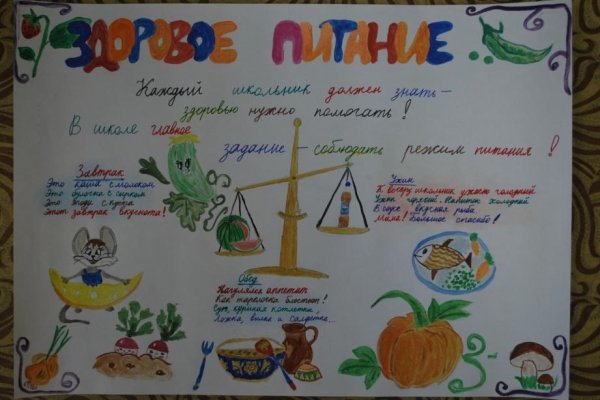 ЗДОРОВОЕ ПИТАНИЕ
Каждый школьник должен знать –
здоровью нужно помогать!
В школе главное
задание – соблюдать режим питания!
Завтрак
Это каша с молоком
Это булочка с сырком
Это ягоды с куста
Этот завтрак вкуснота!
Ужин
К вечеру школьник ужасно голодный
Ужин нужный. Напиток холодный
В соусе вкусная рыба
Мама! Большое спасибо!
Обед
Нагулялся аппетит
Как тарелочка блестит!
Суп, куриная котлетка,
Ложка, вилка и салфетка...